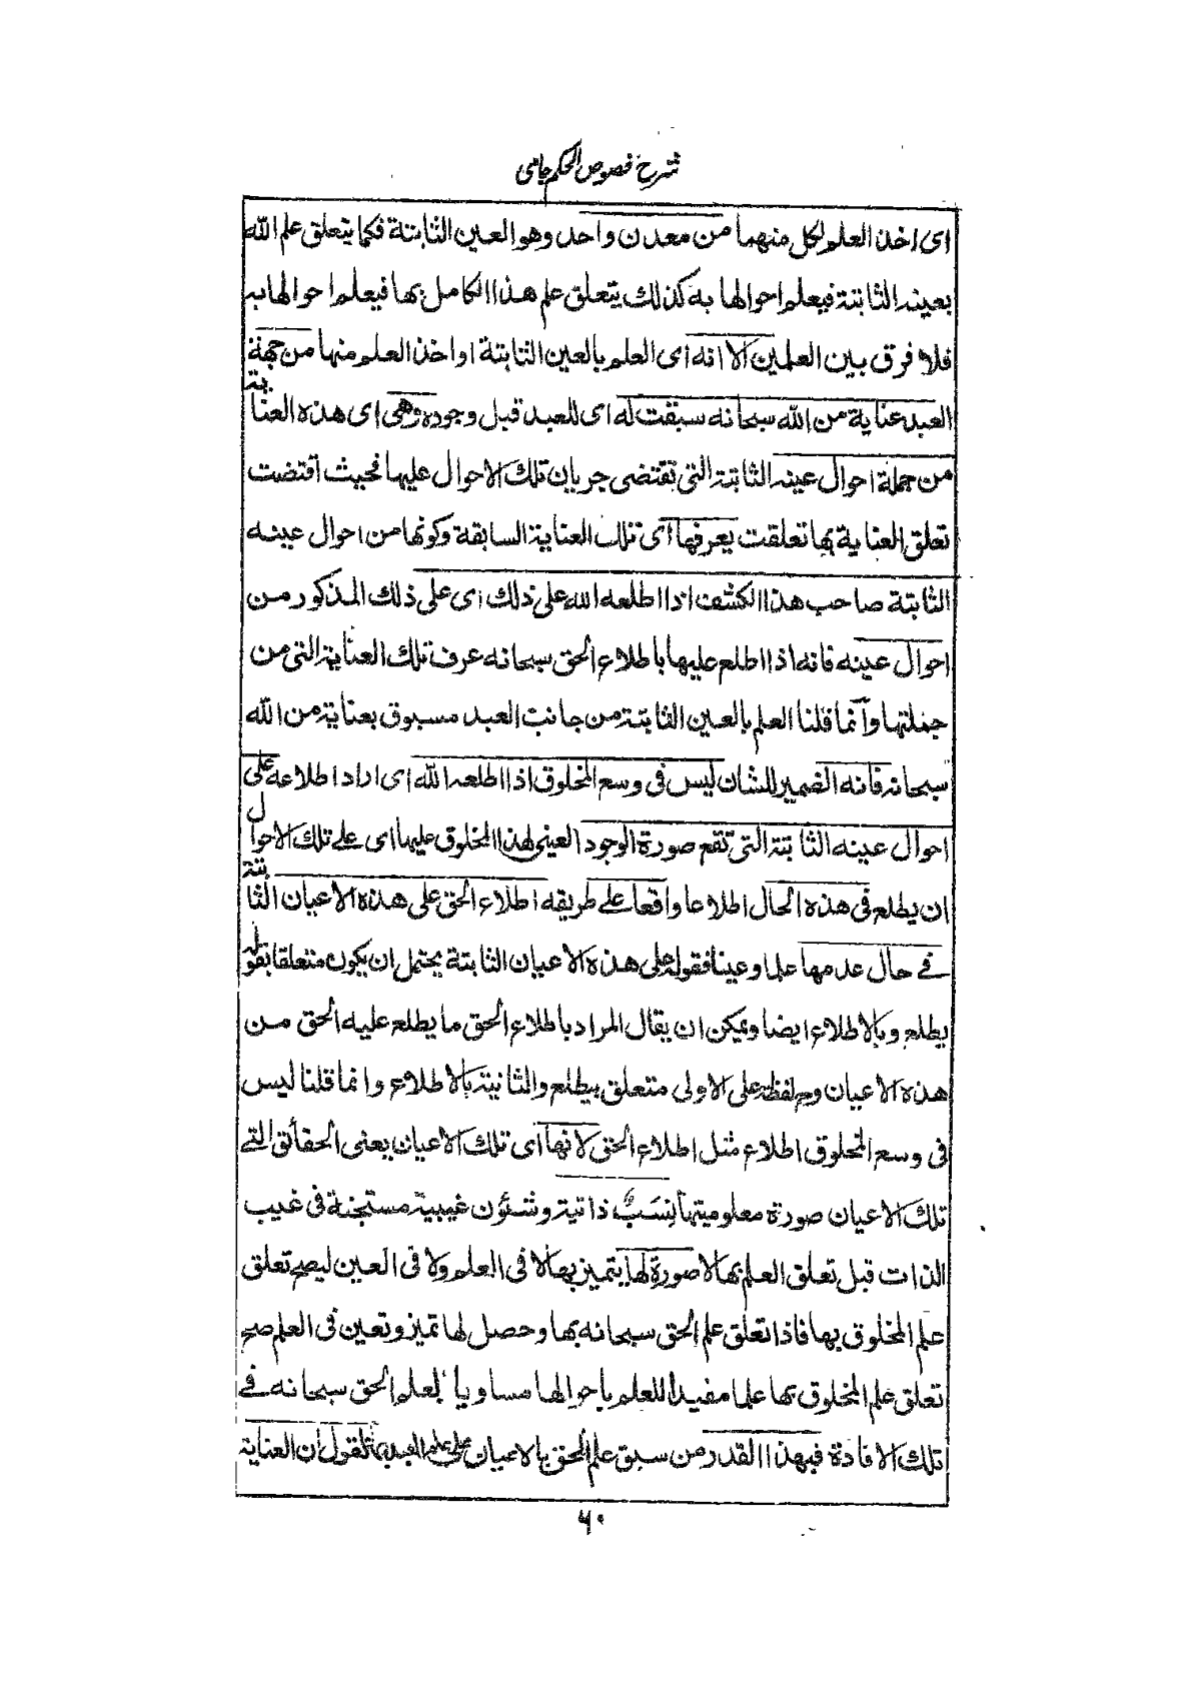 شرح فصوص الحكم جامى
اى اخذ العلم لكل منهما من معدن واحد وهو العين الثابتة فكما يتعلق علم الله
بعينه الثابتة فيعلم احوالها به كذلك يتعلق علم هذا الكامل بها فيعلم احوالها به
فلا فرق بين العلمين الا انه اى العلم بالعين الثابتة او اخذ العلم منها من جهة
العبد عناية من الله سبحانه سبقت له اى للعبد قبل وجوده وهى اى هذه العناية
من جملة احوال عينه الثابتة التى تقتضى جريان تلك الاحوال عليها فحيث اقتضت
تعلق العناية بها تعلقت يعرفها اى تلك العناية السابقة وكونها من احوال عينه
الثابتة صاحب هذا الكشف اذا اطلعه الله على ذلك اى على ذلك المذكور من
احوال عينه فانه اذا اطلع عليها باطلاع الحق سبحانه عرف تلك العناية التى من
جملتها وآنما قلنا العلم بالعين الثابتة من جانب العبد مسبوق بعناية من الله
سبحانه فانه الضمير للشان ليس فى وسع المخلوق اذا اطلعه الله اى اراد اطلاعه على
احوال عينه الثابتة التى تقع صورة الوجود العينى لهذا المخلوق عليها اى على تلك الاحوال
ان يطلع فى هذه الحال اطلاعا واقعا على طريقه اطلاع الحق على هذه الاعيان الثابتة
فى حال عدمها علما وعينا فقوله على هذه الاعيان الثابتة يحتمل ان يكون متعلقا بقوله
يطلع وبالاطلاع ايضا ويمكن ان يقال المراد باطلاع الحق ما يطلع عليه الحق من
هذه الاعيان وح لفظة على الاولى متعلق بيطلع والثانية بالاطلاع وانما قلنا ليس
فى وسع المخلوق اطلاع مثل اطلاع الحق لانها اى تلك الاعيان يعنى الحقائق التى
تلك الاعيان صورة معلوميتها نِسَبٌ ذاتية وشئون غيبية مستجنة فى غيب
الذات قبل تعلق العلم بها لا صورة لها يتميز بها لا فى العلم ولا فى العين ليصح تعلق
علم المخلوق بها فاذا تعلق علم الحق سبحانه بها وحصل لها تميز وتعين فى العلم صح
تعلق علم المخلوق بها علما مفيدا للعلم باحوالها مساويا لعلم الحق سبحانه فى
تلك الافادة فبهذا القدر من سبق علم الحق بالاعيان على علم العبد بها نقول ان العناية
٦٠